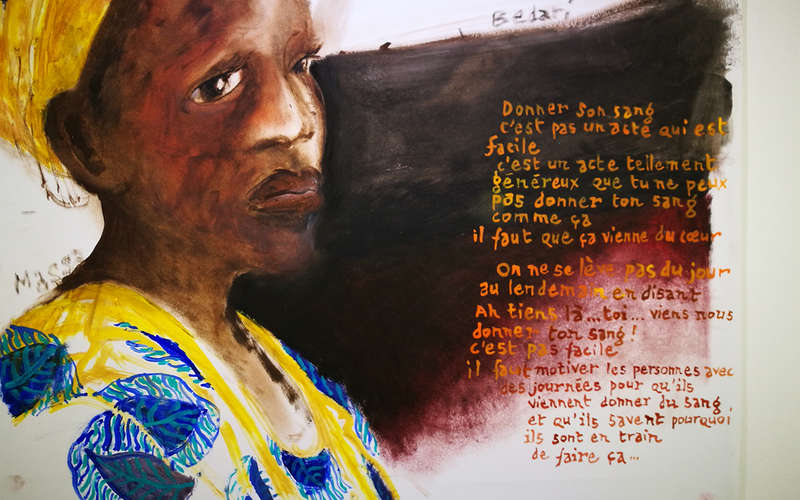 Bedari
Donner son sang
c'est pas un acte qui est
facile
c'est un acte tellement
généreux que tu ne peux
pas donner ton sang
comme ça
il faut que ça vienne du cœur
On ne se lève pas du jour
au lendemain en disant
Ah tiens là...toi... viens nous
donner ton sang!
c'est pas facile
il faut motiver les personnes avec
des journées pour qu'ils
viennent donner du sang
et qu'ils savent pourquoi
ils sont en train
de faire ça...